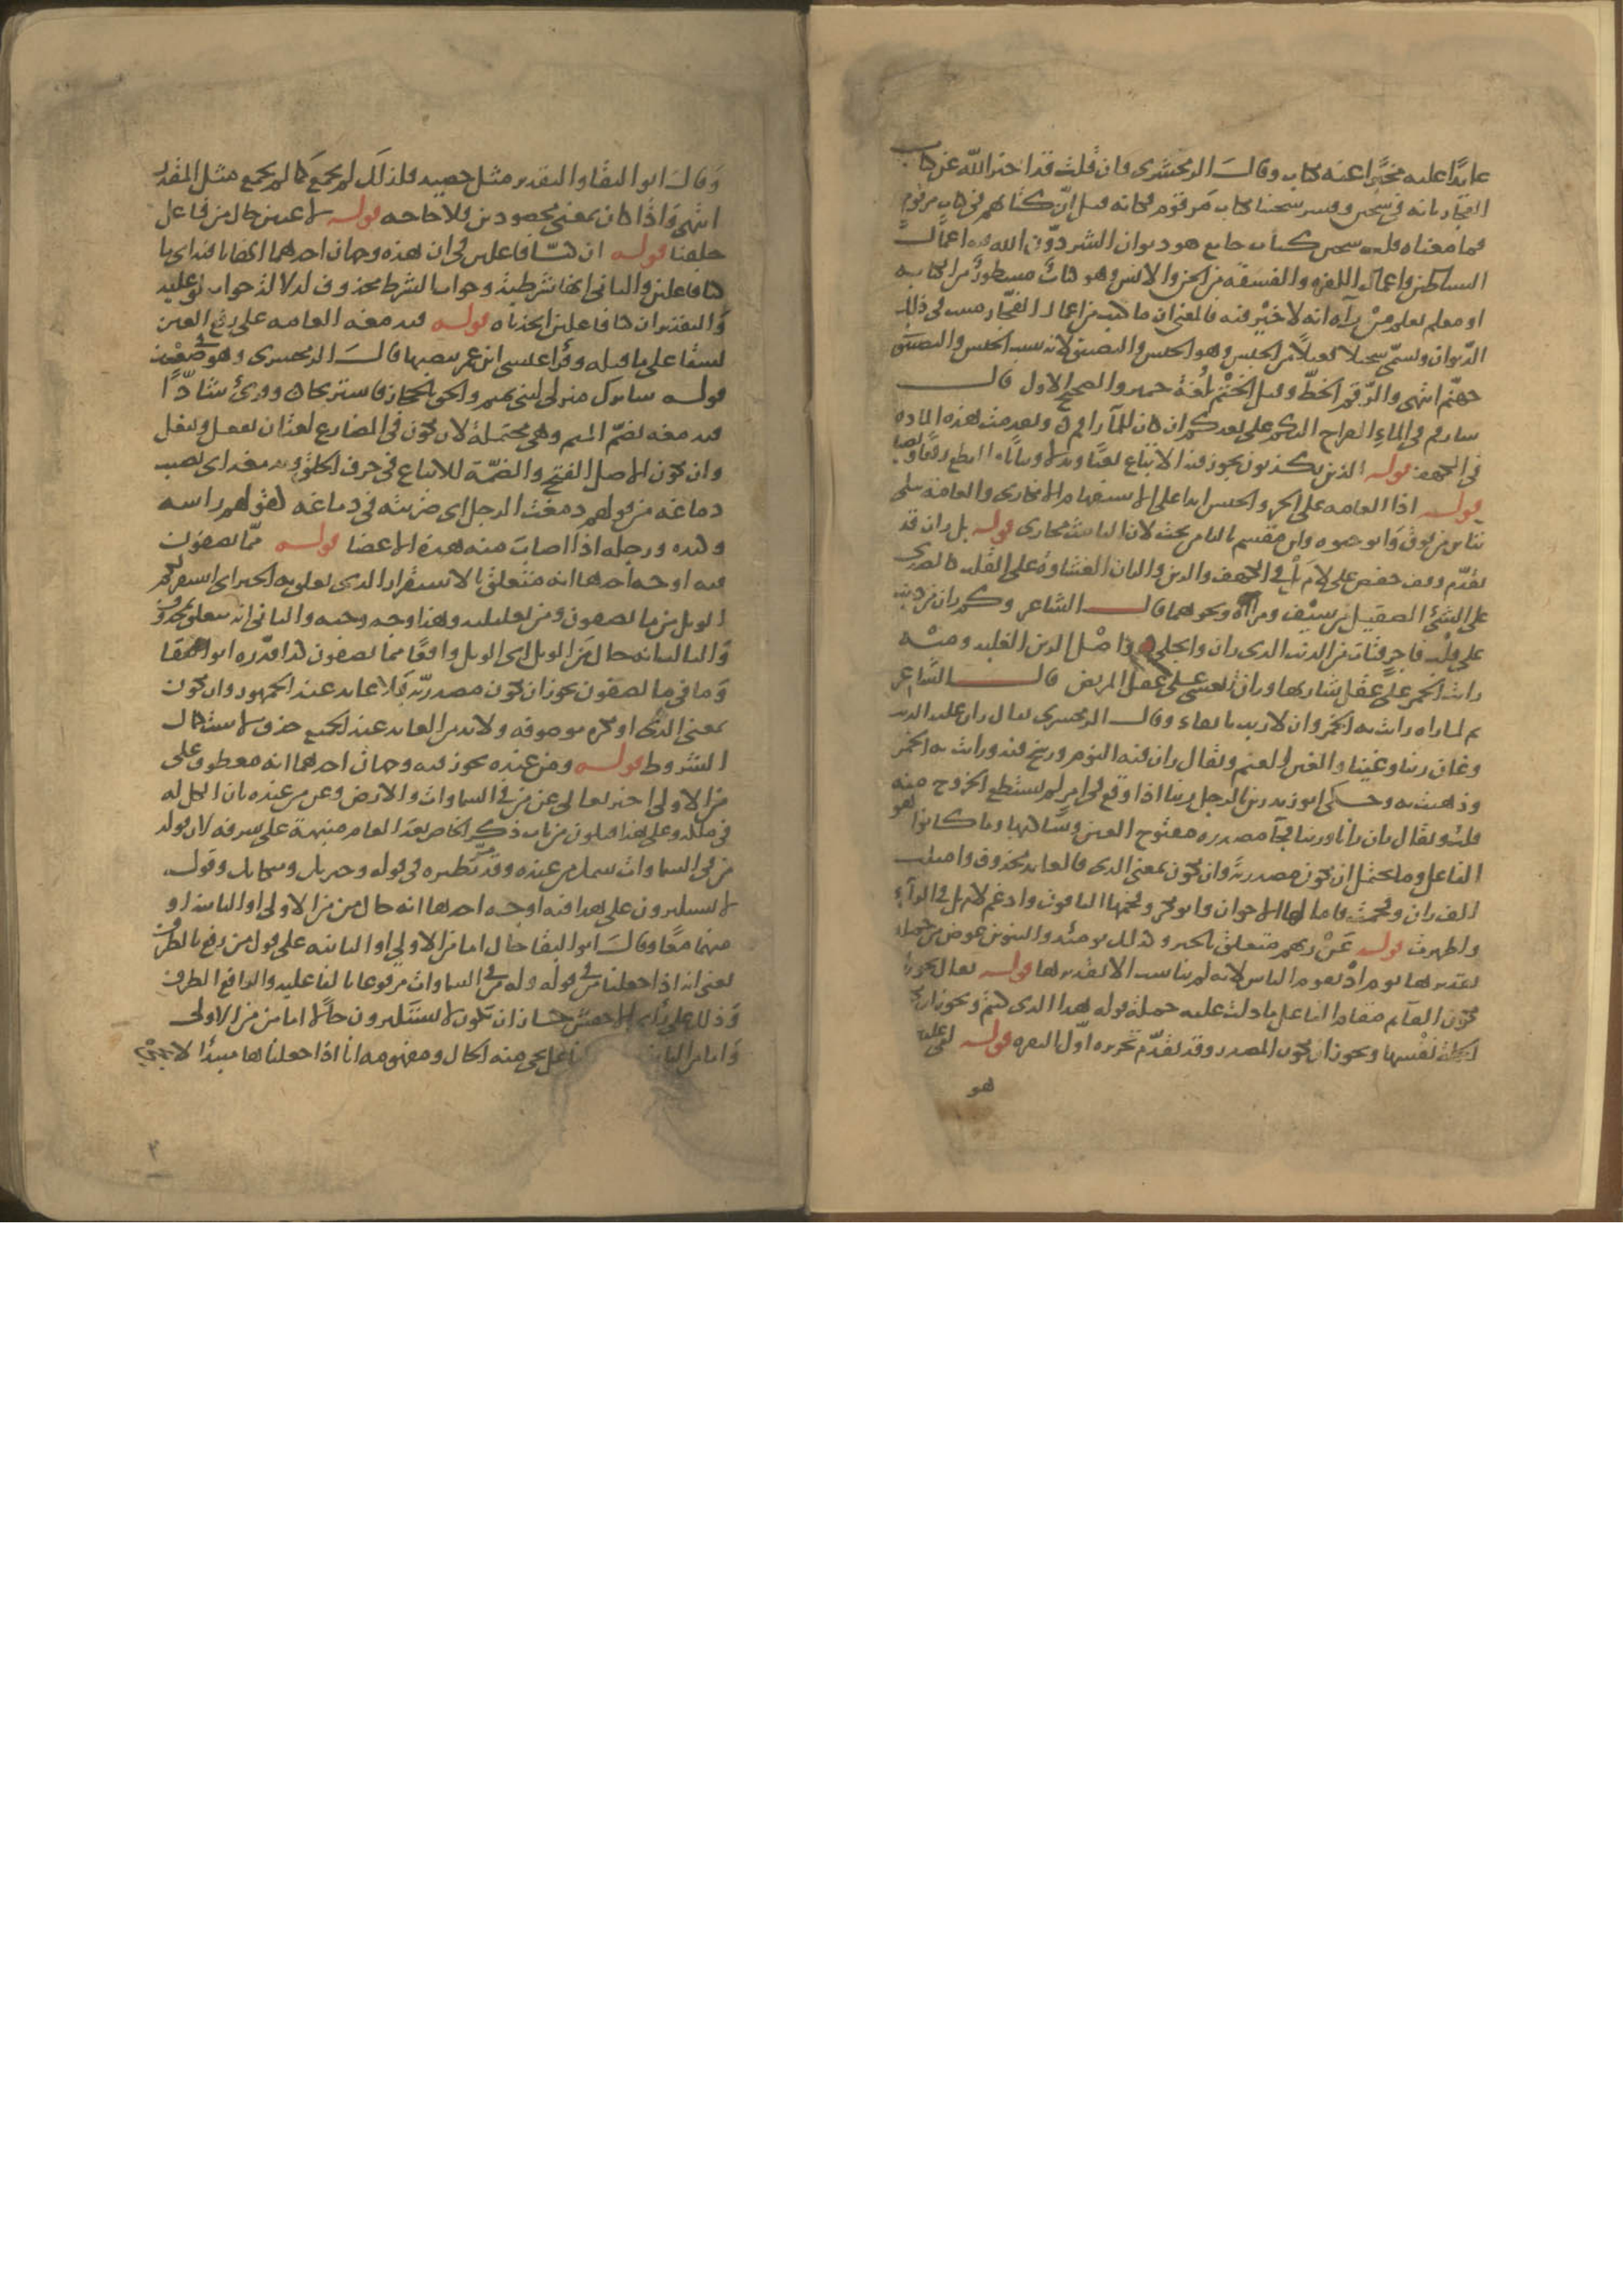 عائدا عليه مخبرا عنه بكتاب وقال الزمخشري فان قلت قد اخبر الله عن كتاب
الفجار بانه في سجين وفسر سجينا بكتاب مرقوم فكانه قيل ان كتابهم في كتاب مرقوم
فما معناه قلت سجين كتاب جامع هو ديوان الشر دون الله فيه اعمال
الشياطين واعمال الكفرة والفسقة من الجن والانس وهو كتاب مسطور بين الكتابة
او معلم يعلم من رآه انه لا خير فيه فالمعنى ان ما كتب من اعمال الفجار مثبت في ذلك
الديوان وسمي سجينا فعيلا من الحبس وهو الحبس والتضييق لانه سبب الحبس والتضييق
جهنم انتهى والرقم الخط وقيل الختم بلغة حمير والصحيح الاول قال
سارقم في الماء القراح اليكم على بعدكم ان كان للماء راقم وتقدمت هذه المادة
في الكهف قوله الذين يكذبون يجوز فيه الاتباع نعتا وبدلا وبيانا والقطع رفعا ونصبا
قوله اذا العامة على الخبر والحسن ايذا على الاستفهام الانكاري والعامة تتلى
بتاءين من فوق وابو حيوة وابن مقسم بالياء من تحت لان التانيث مجازي قوله بل ران قد
تقدم وقف حفص على لام بل في الكهف والرين والران الغشاوة على القلب كالصدى
على الشئ الصقيل من سيف ومرآة ونحوهما قال الشاعر وكم ران من ذنب
على قلب فاجر فتاب من الذنب الذي ران وانجلى واصل الرين الغلبة ومنه
رانت الخمر على عقل شاربها وران الغشي على عقل المريض قال الشاعر
ثم لما رآه رانت به الخمر وان لا ترينه باتقاء وقال الزمخشري يقال ران عليه الذنب
وغان رينا وغينا والغين الغيم ويقال ران فيه النوم ورسخ فيه ورانت به الخمر
وذهبت به وحكى ابو زيد رين بالرجل رينا اذا وقع في امر لم يستطع الخروج منه
قلت ويقال ران رانا ورينا فجاء مصدره مفتوح العين وساكنها وما كانوا هو
الفاعل وما يحتمل ان تكون مصدرية وان تكون بمعنى الذي فالعائد محذوف واميلت
الف ران وفخمت فامالها الاخوان وابو بكر وفخمها الباقون وادغم لام بل في الراء
واظهرت قوله عن ربهم متعلق بالخبر وكذلك يومئذ والتنوين عوض من جملة
تقديرها يوم اذ يقوم الناس لانه لم يناسب الا تقديرها قوله يقال يجوز ان
يكون القائم مقام الفاعل ما دلت عليه جملة قوله هذا الذي كنتم ويجوز ان
الجملة نفسها ويجوز ان يكون المصدر وقد تقدم تحريره اول البقرة قوله لفي عليين
هو
وقال ابو البقاء والتقدير مثل حصيد فلذلك لم يجمع كما لم يجمع مثل المقدر
انتهى واذا كان بمعنى محصودين فلا حاجة قوله لاعبين حال من فاعل
خلقنا قوله ان كنا فاعلين في ان هذه وجهان احدهما انها نافية اي ما
كنا فاعلين والثاني انها شرطية وجواب الشرط محذوف لدلالة جواب لو عليه
والتقدير ان كنا فاعلين اتخذناه قوله فيدمغه العامة على رفع الغين
نسقا على ما قبله وقرأ عيسى ابن عمر بنصبها قال الزمخشري وهو في ضعف
قوله ساترك منزلي لبني تميم والحق بالحجاز فاستريحا وقرئ شاذا
فيدمغه بضم الميم وهي محتملة لان تكون في المضارع لغتان يفعل ويفعل
وان تكون الاصل الفتح والضمة للاتباع في حرف الحلق ويدمغه اي يصيب
دماغه من قولهم دمغت الرجل اي ضربته في دماغه كقولهم راسه
وكبده ورجله اذا اصاب منه هذه الاعضاء قوله مما تصفون
فيه اوجه احدها انه متعلق بالاستقرار الذي تعلق به الخبر اي استقر لكم
الويل من ما تصفون ومن تعليلية وهذا وجه وجيه والثاني انه متعلق بمحذوف
والثالث انه حال من الويل اي الويل واقعا مما تصفون كذا قدره ابو البقاء
وما في مما تصفون يجوز ان تكون مصدرية فلا عائد عند الجمهور وان تكون
بمعنى الذي او نكرة موصوفة ولا بد من العائد عند الجميع حذف لاستكمال
الشروط قوله ومن عنده يجوز فيه وجهان احدهما انه معطوف على
من الاولى اخبر تعالى عن من في السماوات والارض وعن من عنده بان الكل له
في ملكه وعلى هذا فيكون من باب ذكر الخاص بعد العام منبهة على شرفه لان قوله
من في السماوات شمل من عنده وقد مر نظيره في قوله وجبريل وميكايل وقوله
لا يستكبرون على هذا فيه اوجه احدها انه حال من من الاولى او الثانية او
منهما معا وقال ابو البقاء حال اما من الاولى او الثانية على قول من رفع بالظرف
يعني انه اذا جعلنا من في قوله وله من في السماوات مرفوعا بالفاعلية والرافع الظرف
وذلك على راي الاخفش جاز ان يكون لا يستكبرون حالا اما من من الاولى
واما من الثانية فاعل يجئ منه الحال ومفهومه انا اذا جعلناها مبتدا لا يجئ
٢